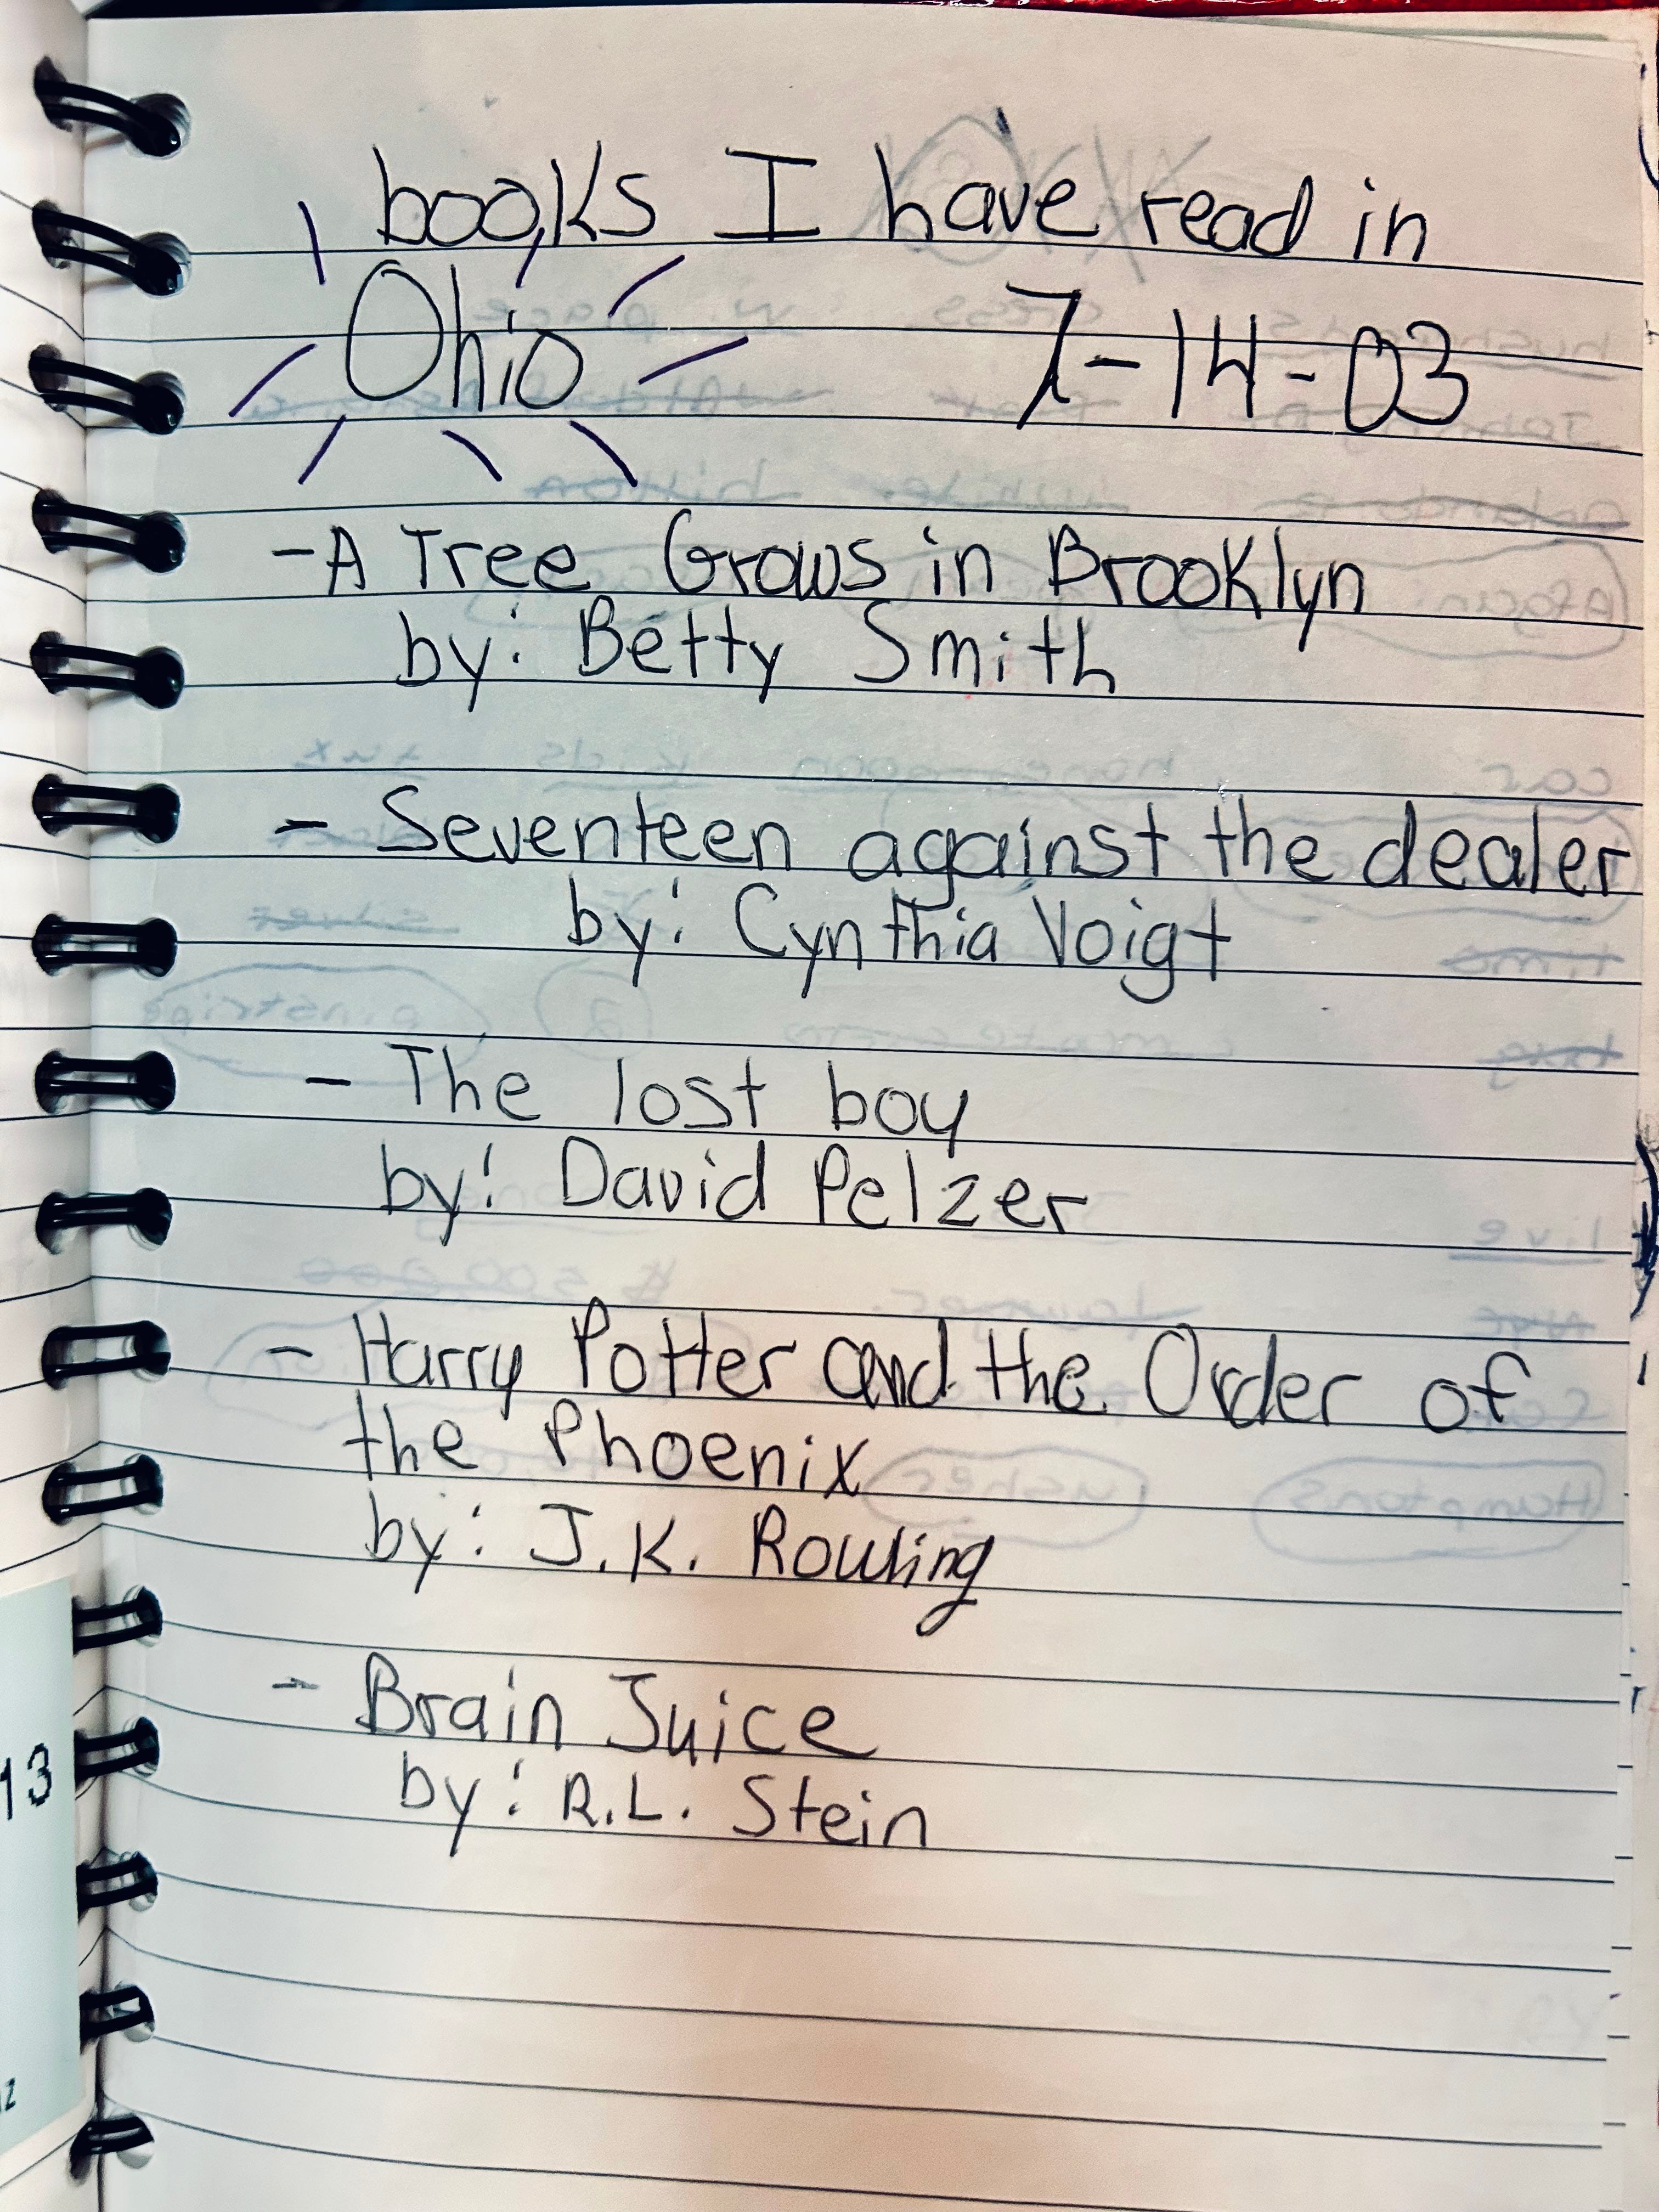 books I have read in
Ohio 7-14-03
- A Tree Grows in Brooklyn
by: Betty Smith
- Seventeen against the dealer
by: Cynthia Voigt
- The lost boy
by: David Pelzer
- Harry Potter and the Order of
the Phoenix
by: J.K. Rowling
- Brain Juice
by: R.L. Stein
13